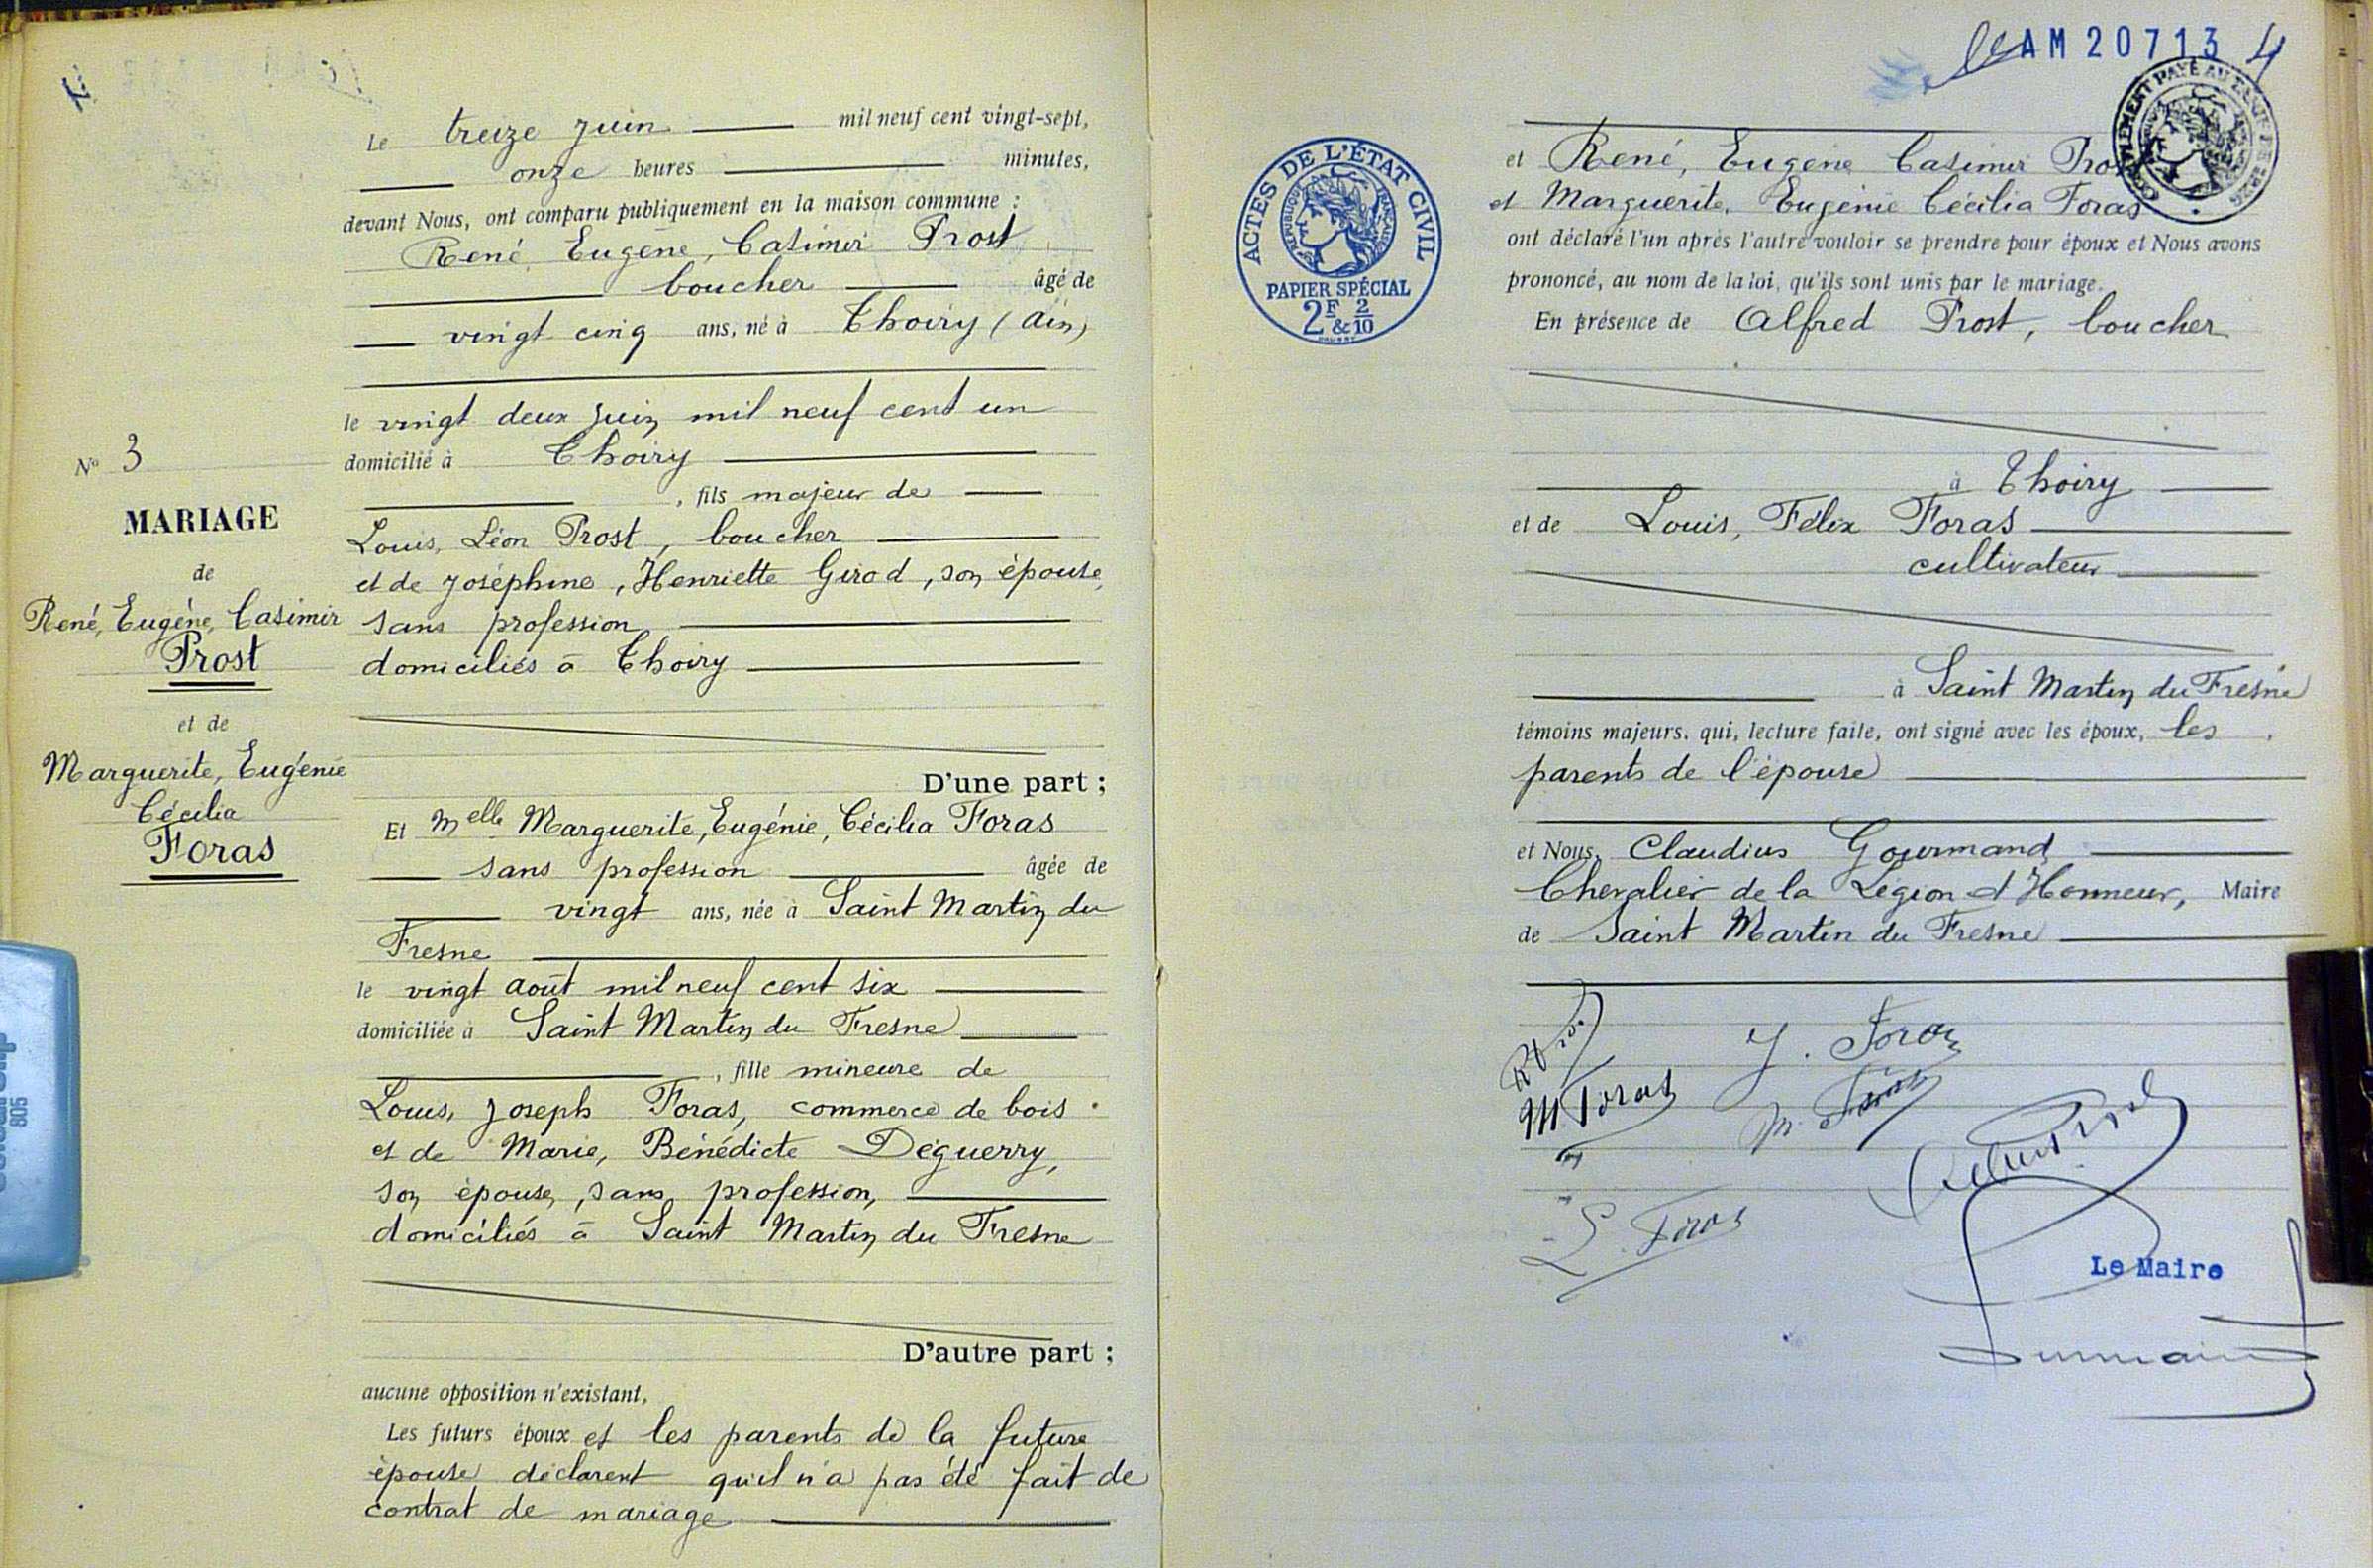 Le treize Juin mil neuf cent vingt-sept,
onze heures minutes,
devant Nous, ont comparu publiquement en la maison commune :
René, Eugène, Casimir Prost
boucher âgé de
vingt cinq ans, né à Thoiry (Ain)
le vingt deux Juin mil neuf cent un
domicilié à Thoiry
, fils majeur de
Louis, Léon Prost, boucher
et de Joséphine, Henriette Girod, son épouse,
sans profession
domiciliés à Thoiry
D'une part ;
N° 3
MARIAGE
de
René, Eugène, Casimir
Prost
et de
Marguerite, Eugénie
Cécilia
Foras
Et Melle Marguerite, Eugénie, Cécilia Foras
sans profession âgée de
vingt ans, née à Saint Martin du
Fresne
le vingt août mil neuf cent six
domiciliée à Saint Martin du Fresne
, fille mineure de
Louis, Joseph Foras, commerce de bois
et de Marie, Bénédicte Déguerry,
son épouse, sans profession,
domiciliés à Saint Martin du Fresne
D'autre part ;
aucune opposition n'existant,
Les futurs époux et les parents de la future
épouse déclarent qu'il n'a pas été fait de
contrat de mariage
AM 20713 4
et René, Eugène Casimir Prost
et Marguerite, Eugénie Cécilia Foras
ont déclaré l'un après l'autre vouloir se prendre pour époux et Nous avons
prononcé, au nom de la loi, qu'ils sont unis par le mariage.
ACTES DE L'ÉTAT CIVIL
RÉPUBLIQUE FRANÇAISE
PAPIER SPÉCIAL
2F & 2/10
En présence de Alfred Prost, boucher
à Thoiry
et de Louis, Félix Foras
cultivateur
à Saint Martin du Fresne
témoins majeurs, qui, lecture faite, ont signé avec les époux, les
parents de l'épouse
et Nous, Claudius Gourmand
Chevalier de la Légion d'Honneur, Maire
de Saint Martin du Fresne
J. Foras
M Foras
M. Foras
L. Foras
Le Maire
805